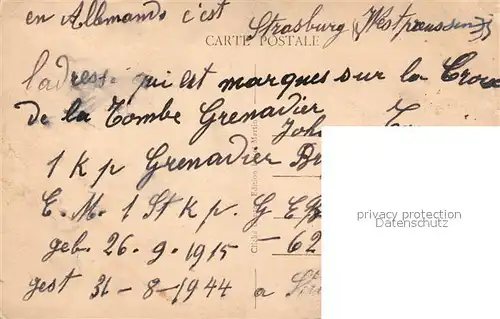 en Allemands c'est Strasburg (Westpreussen)
CARTE POSTALE
l'adresse qui est marques sur la Croix
de la Tombe Grenadier
Joh
1 Kp Grenadier Br
E. M. 1 St Kp. G E
geb. 26-9-1915 - 62
gest 31-8-1944 a
privacy protection
watermark